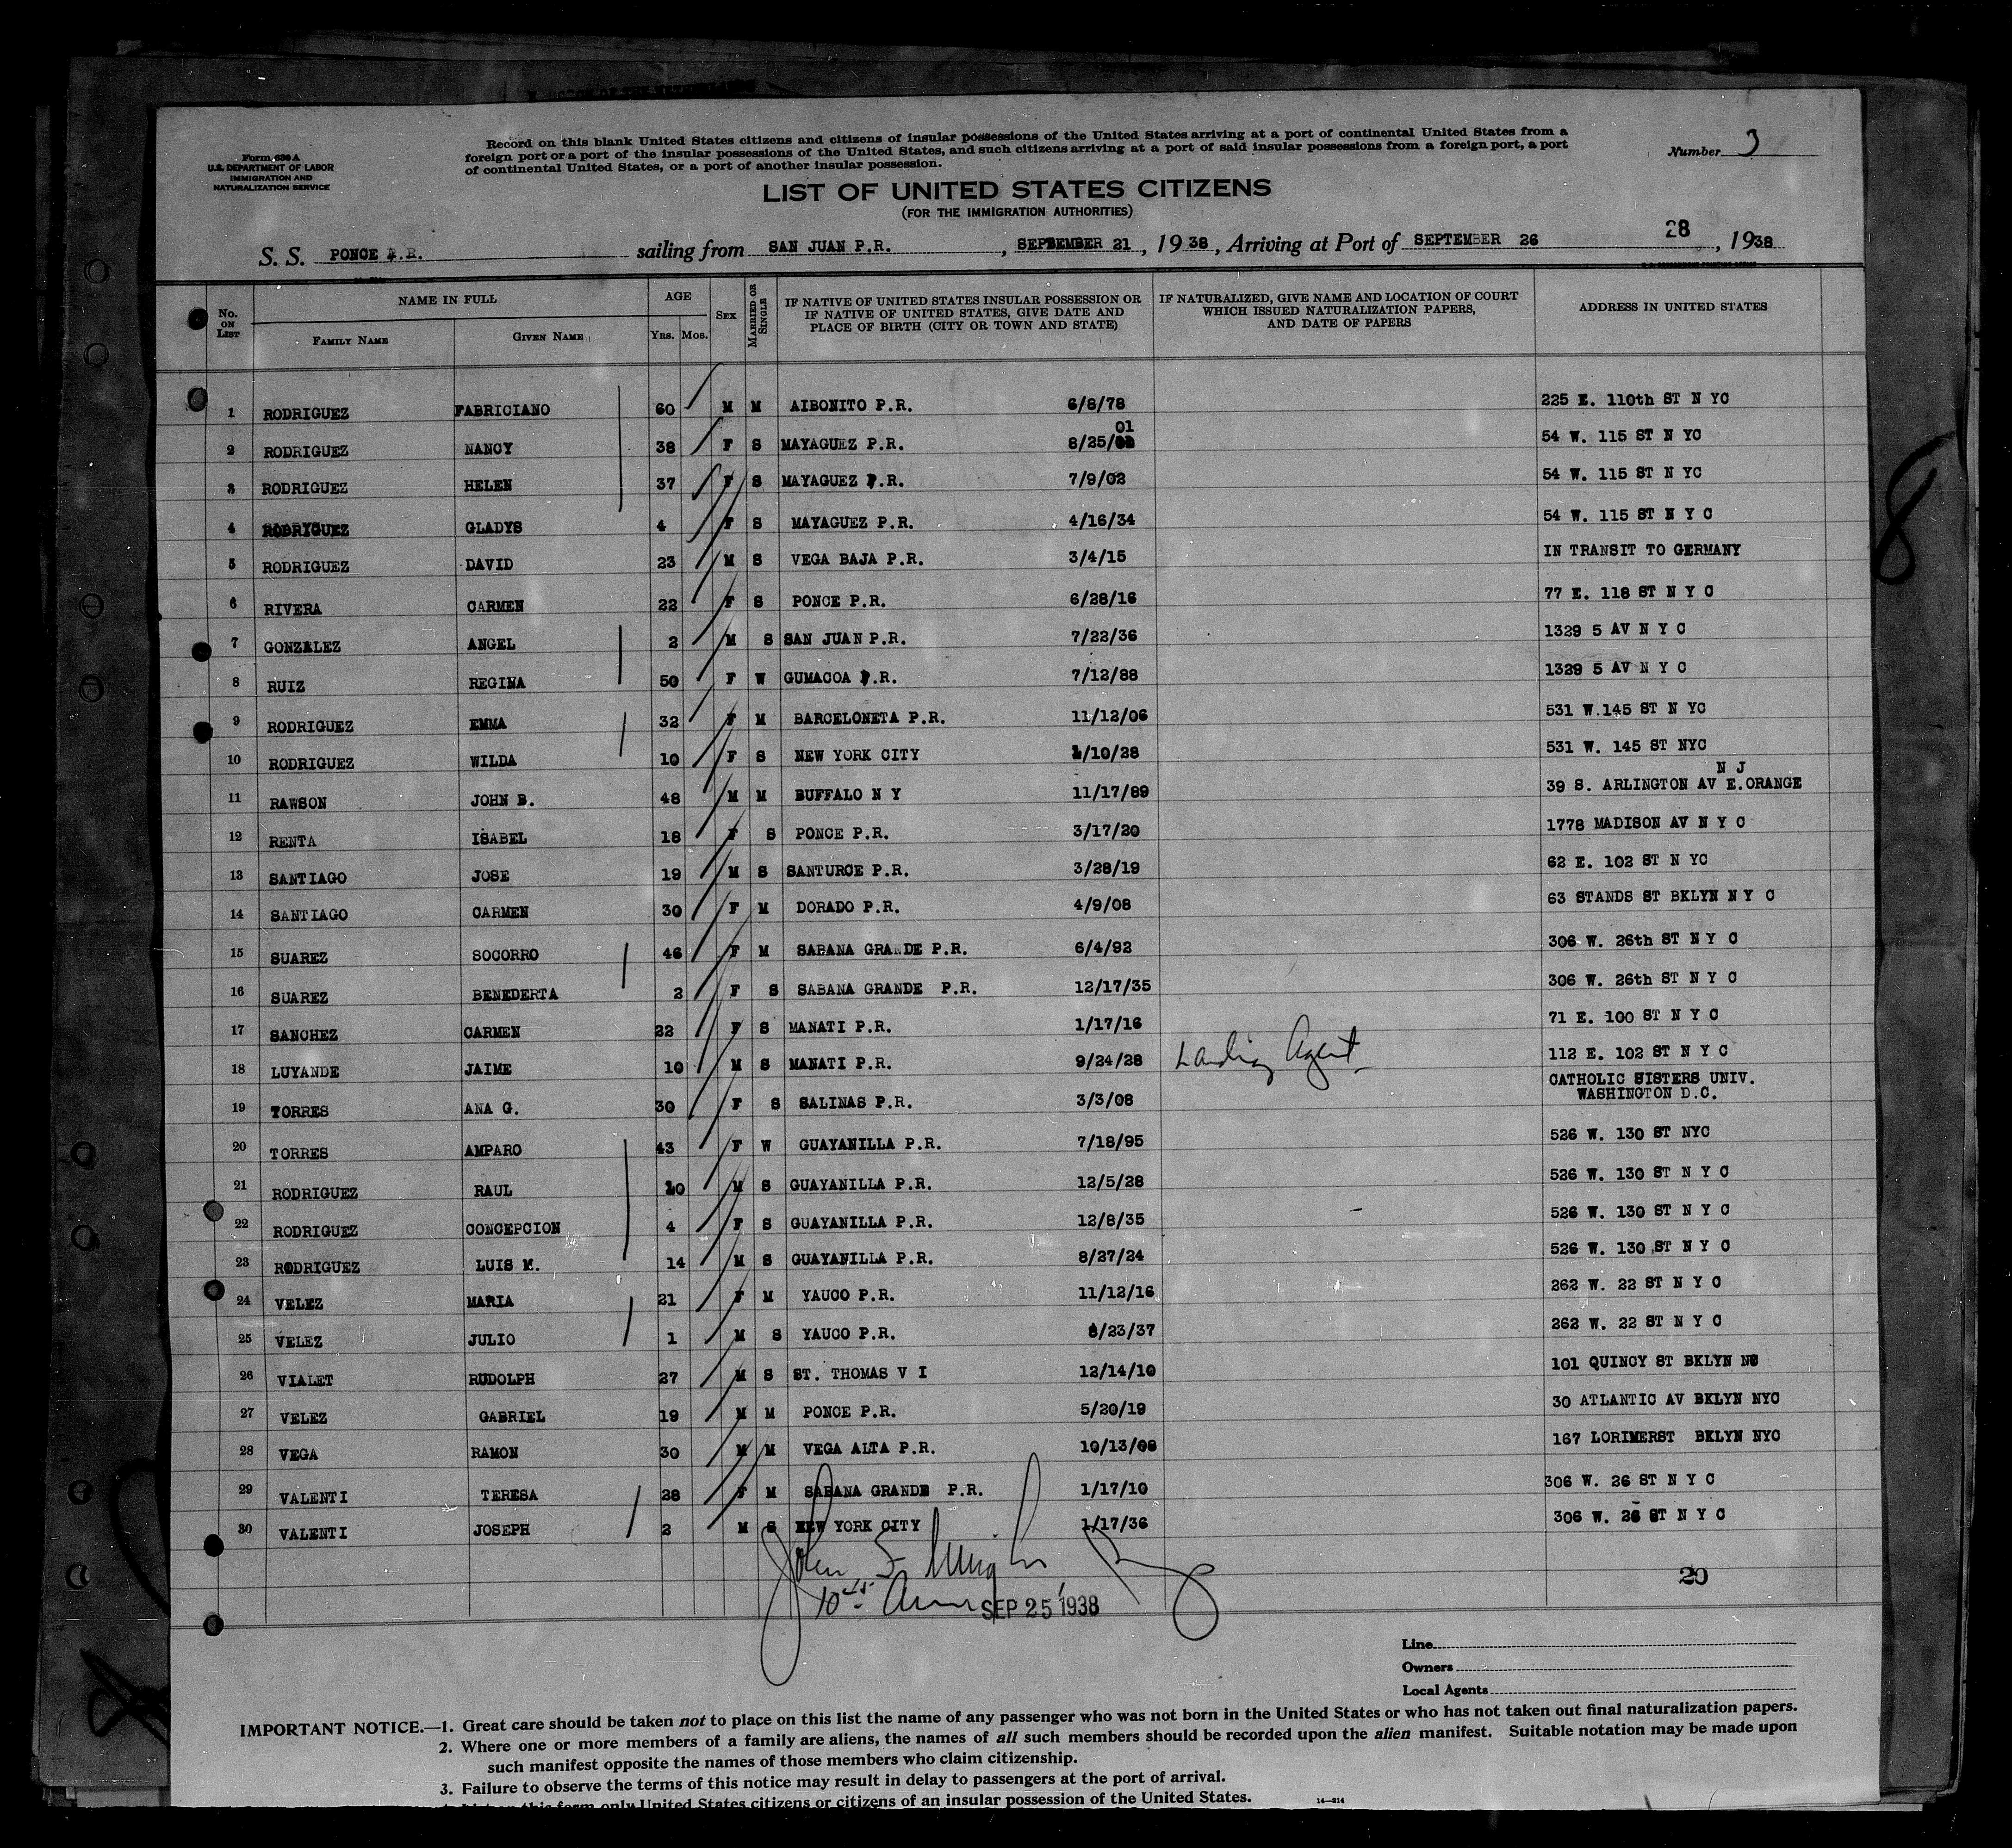 Form 630 A
U.S. DEPARTMENT OF LABOR
IMMIGRATION AND
NATURALIZATION SERVICE
Record on this blank United States citizens and citizens of insular possessions of the United States arriving at a port of continental United States from a
foreign port or a port of the insular possessions of the United States, and such citizens arriving at a port of said insular possessions from a foreign port, a port
of continental United States, or a port of another insular possession.
Number 3
LIST OF UNITED STATES CITIZENS
(FOR THE IMMIGRATION AUTHORITIES)
28
S. S. PONCE sailing from SAN JUAN P.R. , SEPTEMBER 21 , 1938, Arriving at Port of SEPTEMBER 26 , 1938
No. ON LIST NAME IN FULL FAMILY NAME GIVEN NAME AGE YRS. MOS. SEX MARRIED OR SINGLE IF NATIVE OF UNITED STATES INSULAR POSSESSION OR IF NATIVE OF UNITED STATES, GIVE DATE AND PLACE OF BIRTH (CITY OR TOWN AND STATE) IF NATURALIZED, GIVE NAME AND LOCATION OF COURT WHICH ISSUED NATURALIZATION PAPERS, AND DATE OF PAPERS ADDRESS IN UNITED STATES
1 RODRIGUEZ FABRICIANO 60 M M AIBONITO P.R. 6/8/78 225 E. 110th ST N YC
2 RODRIGUEZ NANCY 38 F S MAYAGUEZ P.R. 8/25/01 54 W. 115 ST N YC
3 RODRIGUEZ HELEN 37 F S MAYAGUEZ P.R. 7/9/02 54 W. 115 ST N YC
4 RODRIGUEZ GLADYS 4 F S MAYAGUEZ P.R. 4/16/34 54 W. 115 ST N Y C
5 RODRIGUEZ DAVID 23 M S VEGA BAJA P.R. 3/4/15 IN TRANSIT TO GERMANY
6 RIVERA CARMEN 22 F S PONCE P.R. 6/28/16 77 E. 118 ST N Y C
7 GONZALEZ ANGEL 2 M S SAN JUAN P.R. 7/22/36 1329 5 AV N Y C
8 RUIZ REGINA 50 F W GUMACOA P.R. 7/12/88 1329 5 AV N Y C
9 RODRIGUEZ EMMA 32 F M BARCELONETA P.R. 11/12/06 531 W.145 ST N YC
10 RODRIGUEZ WILDA 10 F S NEW YORK CITY 1/10/28 531 W. 145 ST NYC
11 RAWSON JOHN B. 48 M M BUFFALO N Y 11/17/89 39 S. ARLINGTON AV E.ORANGE N J
12 RENTA ISABEL 18 F S PONCE P.R. 3/17/20 1778 MADISON AV N Y C
13 SANTIAGO JOSE 19 M S SANTURCE P.R. 3/28/19 62 E. 102 ST N YC
14 SANTIAGO CARMEN 30 F M DORADO P.R. 4/9/08 63 STANDS ST BKLYN N Y C
15 SUAREZ SOCORRO 46 F M SABANA GRANDE P.R. 6/4/92 306 W. 26th ST N Y C
16 SUAREZ BENEDERTA 2 F S SABANA GRANDE P.R. 12/17/35 306 W. 26th ST N Y C
17 SANCHEZ CARMEN 22 F S MANATI P.R. 1/17/16 71 E. 100 ST N Y C
18 LUYANDE JAIME 10 M S MANATI P.R. 9/24/28 Landing Agent 112 E. 102 ST N Y C
19 TORRES ANA G. 30 F S SALINAS P.R. 3/3/08 CATHOLIC SISTERS UNIV. WASHINGTON D.C.
20 TORRES AMPARO 43 F W GUAYANILLA P.R. 7/18/95 526 W. 130 ST NYC
21 RODRIGUEZ RAUL 10 M S GUAYANILLA P.R. 12/5/28 526 W. 130 ST N Y C
22 RODRIGUEZ CONCEPCION 4 F S GUAYANILLA P.R. 12/8/35 526 W. 130 ST N Y C
23 RODRIGUEZ LUIS M. 14 M S GUAYANILLA P.R. 8/27/24 526 W. 130 ST N Y C
24 VELEZ MARIA 21 F M YAUCO P.R. 11/12/16 262 W. 22 ST N Y C
25 VELEZ JULIO 1 M S YAUCO P.R. 8/23/37 262 W. 22 ST N Y C
26 VIALET RUDOLPH 27 M S ST. THOMAS V I 12/14/10 101 QUINCY ST BKLYN
27 VELEZ GABRIEL 19 M M PONCE P.R. 5/20/19 30 ATLANTIC AV BKLYN NYC
28 VEGA RAMON 30 M M VEGA ALTA P.R. 10/13/08 167 LORIMERST BKLYN NYC
29 VALENTI TERESA 28 F M SABANA GRANDE P.R. 1/17/10 306 W. 26 ST N Y C
30 VALENTI JOSEPH 2 M S NEW YORK CITY 1/17/36 306 W. 26 ST N Y C
John
20
10 45 SEP 25 1938
Line
Owners
Local Agents
IMPORTANT NOTICE.—1. Great care should be taken not to place on this list the name of any passenger who was not born in the United States or who has not taken out final naturalization papers.
2. Where one or more members of a family are aliens, the names of all such members should be recorded upon the alien manifest. Suitable notation may be made upon
such manifest opposite the names of those members who claim citizenship.
3. Failure to observe the terms of this notice may result in delay to passengers at the port of arrival.
this form only United States citizens or citizens of an insular possession of the United States.
14—214
8